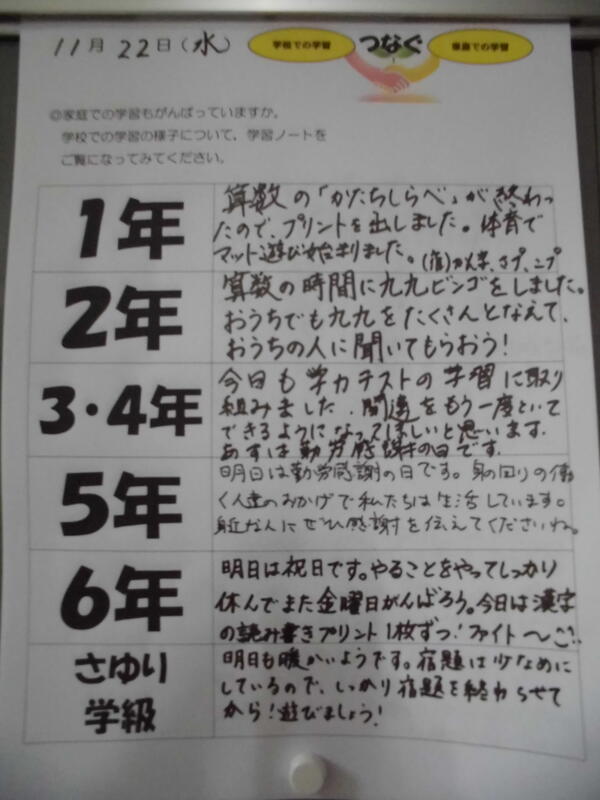 11月 22日(水)
学校での学習 つなぐ 家庭での学習
◎家庭での学習もがんばっていますか。
学校での学習の様子について、学習ノートを
ご覧になってみてください。
1年
算数の「かたちしらべ」が終わっ
たので、プリントを出しました。体育で
マット遊び始まりました。(宿)カ文字、さプ、ニプ
2年
算数の時間に九九ビンゴをしました。
おうちでも九九をたくさんとなえて、
おうちの人に聞いてもらおう!
3・4年
今日も学力テストの学習に取り
組みました。間違をもう一度といて
できるようになってほしいと思います。
あすは勤労感謝の日です。
5年
明日は勤労感謝の日です。身の回りの働
く人達のおかげで私たちは生活しています。
身近な人にぜひ感謝を伝えてくださいね。
6年
明日は祝日です。やることをやってしっかり
休んでまた金曜日がんばろう。今日は漢字
の読み書きプリント1枚ずつ!ファイト〜
さゆり
学級
明日も暖かいようです。宿題は少なめに
しているので、しっかり宿題を終わらせて
から!遊びましょう!